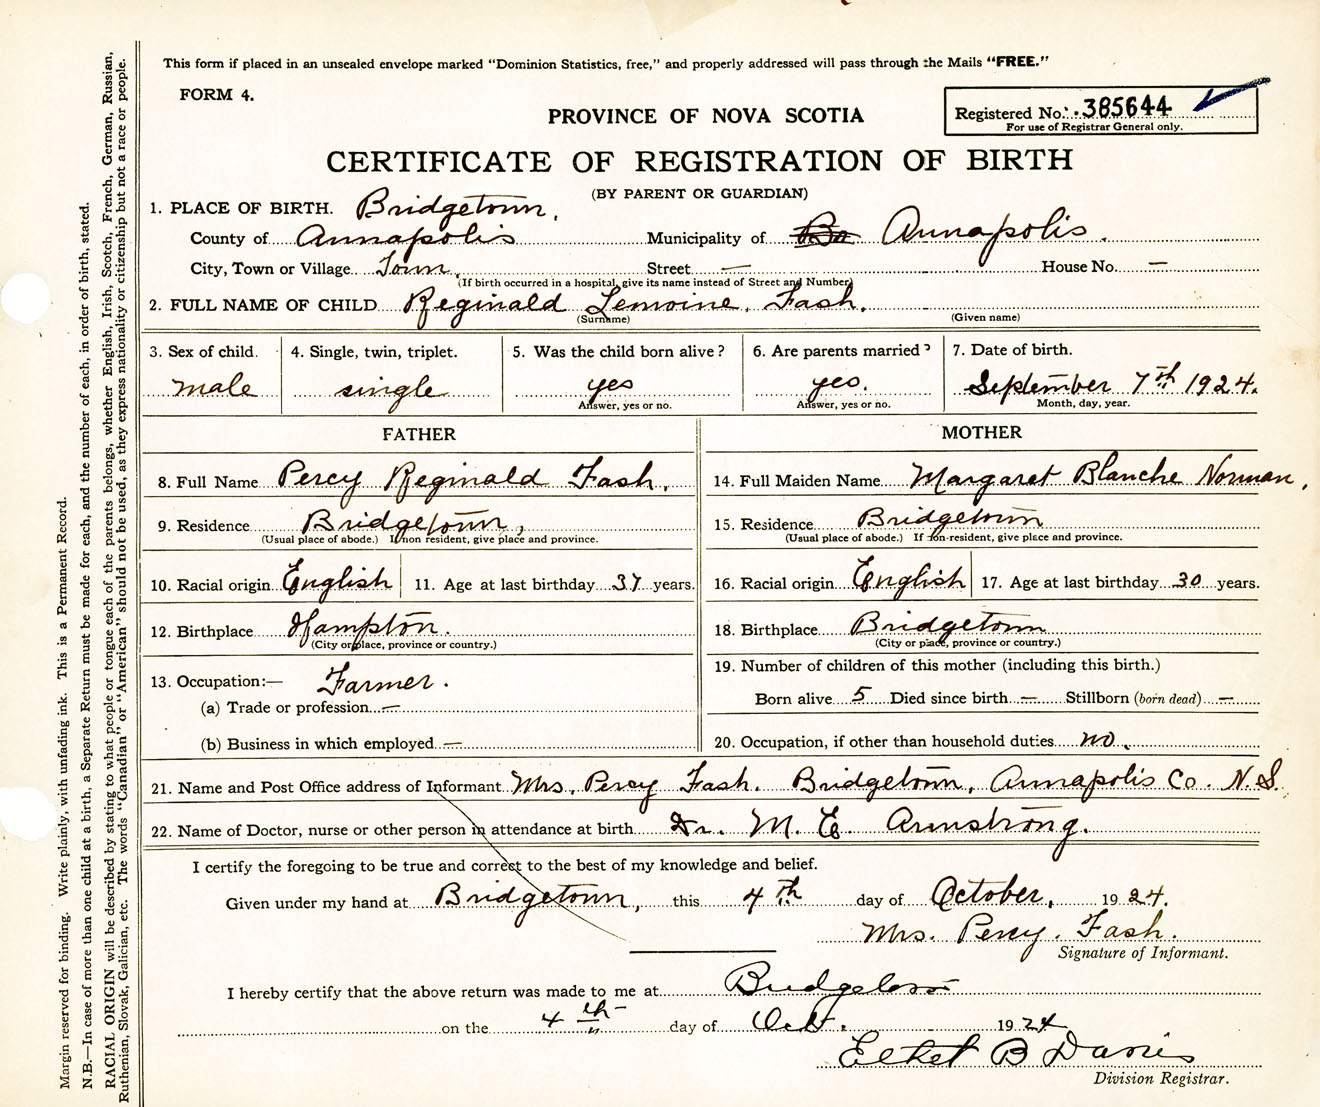 This form if placed in an unsealed envelope marked "Dominion Statistics, free," and properly addressed will pass through the Mails "FREE."
FORM 4.
PROVINCE OF NOVA SCOTIA
Registered No. 385644
For use of Registrar General only.
CERTIFICATE OF REGISTRATION OF BIRTH
(BY PARENT OR GUARDIAN)
1. PLACE OF BIRTH. Bridgetown,
County of Annapolis Municipality of Annapolis.
City, Town or Village Town, Street — House No. —
(If birth occurred in a hospital, give its name instead of Street and Number)
2. FULL NAME OF CHILD Reginald Lemoine, Fash.
(Surname) (Given name)
3. Sex of child. 4. Single, twin, triplet. 5. Was the child born alive? 6. Are parents married? 7. Date of birth.
male single yes yes. September 7th 1924.
Answer, yes or no. Answer, yes or no. Month, day, year.
FATHER MOTHER
8. Full Name Percy Reginald Fash. 14. Full Maiden Name Margaret Blanche Norman.
9. Residence Bridgetown, 15. Residence Bridgetown
(Usual place of abode.) If non resident, give place and province. (Usual place of abode.) If non-resident, give place and province.
10. Racial origin English 11. Age at last birthday 37 years. 16. Racial origin English 17. Age at last birthday 30 years.
12. Birthplace Hampton. 18. Birthplace Bridgetown
(City or place, province or country.) (City or place, province or country.)
13. Occupation:— Farmer. 19. Number of children of this mother (including this birth.)
(a) Trade or profession — Born alive 5 Died since birth — Stillborn (born dead) —
(b) Business in which employed — 20. Occupation, if other than household duties no.
21. Name and Post Office address of Informant Mrs. Percy Fash. Bridgetown, Annapolis Co. N.S.
22. Name of Doctor, nurse or other person in attendance at birth Dr. M. E. Armstrong.
I certify the foregoing to be true and correct to the best of my knowledge and belief.
Given under my hand at Bridgetown, this 4th day of October, 1924.
Mrs. Percy. Fash.
Signature of Informant.
I hereby certify that the above return was made to me at Bridgetown
on the 4th day of Oct. 1924
Ethel B Davies
Division Registrar.
Margin reserved for binding. Write plainly, with unfading ink. This is a Permanent Record.
N.B.—In case of more than one child at a birth, a Separate Return must be made for each, and the number of each, in order of birth, stated.
RACIAL ORIGIN will be described by stating to what people or tongue each of the parents belongs, whether English, Irish, Scotch, French, German, Russian,
Ruthenian, Slovak, Galician, etc. The words "Canadian" or "American" should not be used, as they express nationality or citizenship but not a race or people.